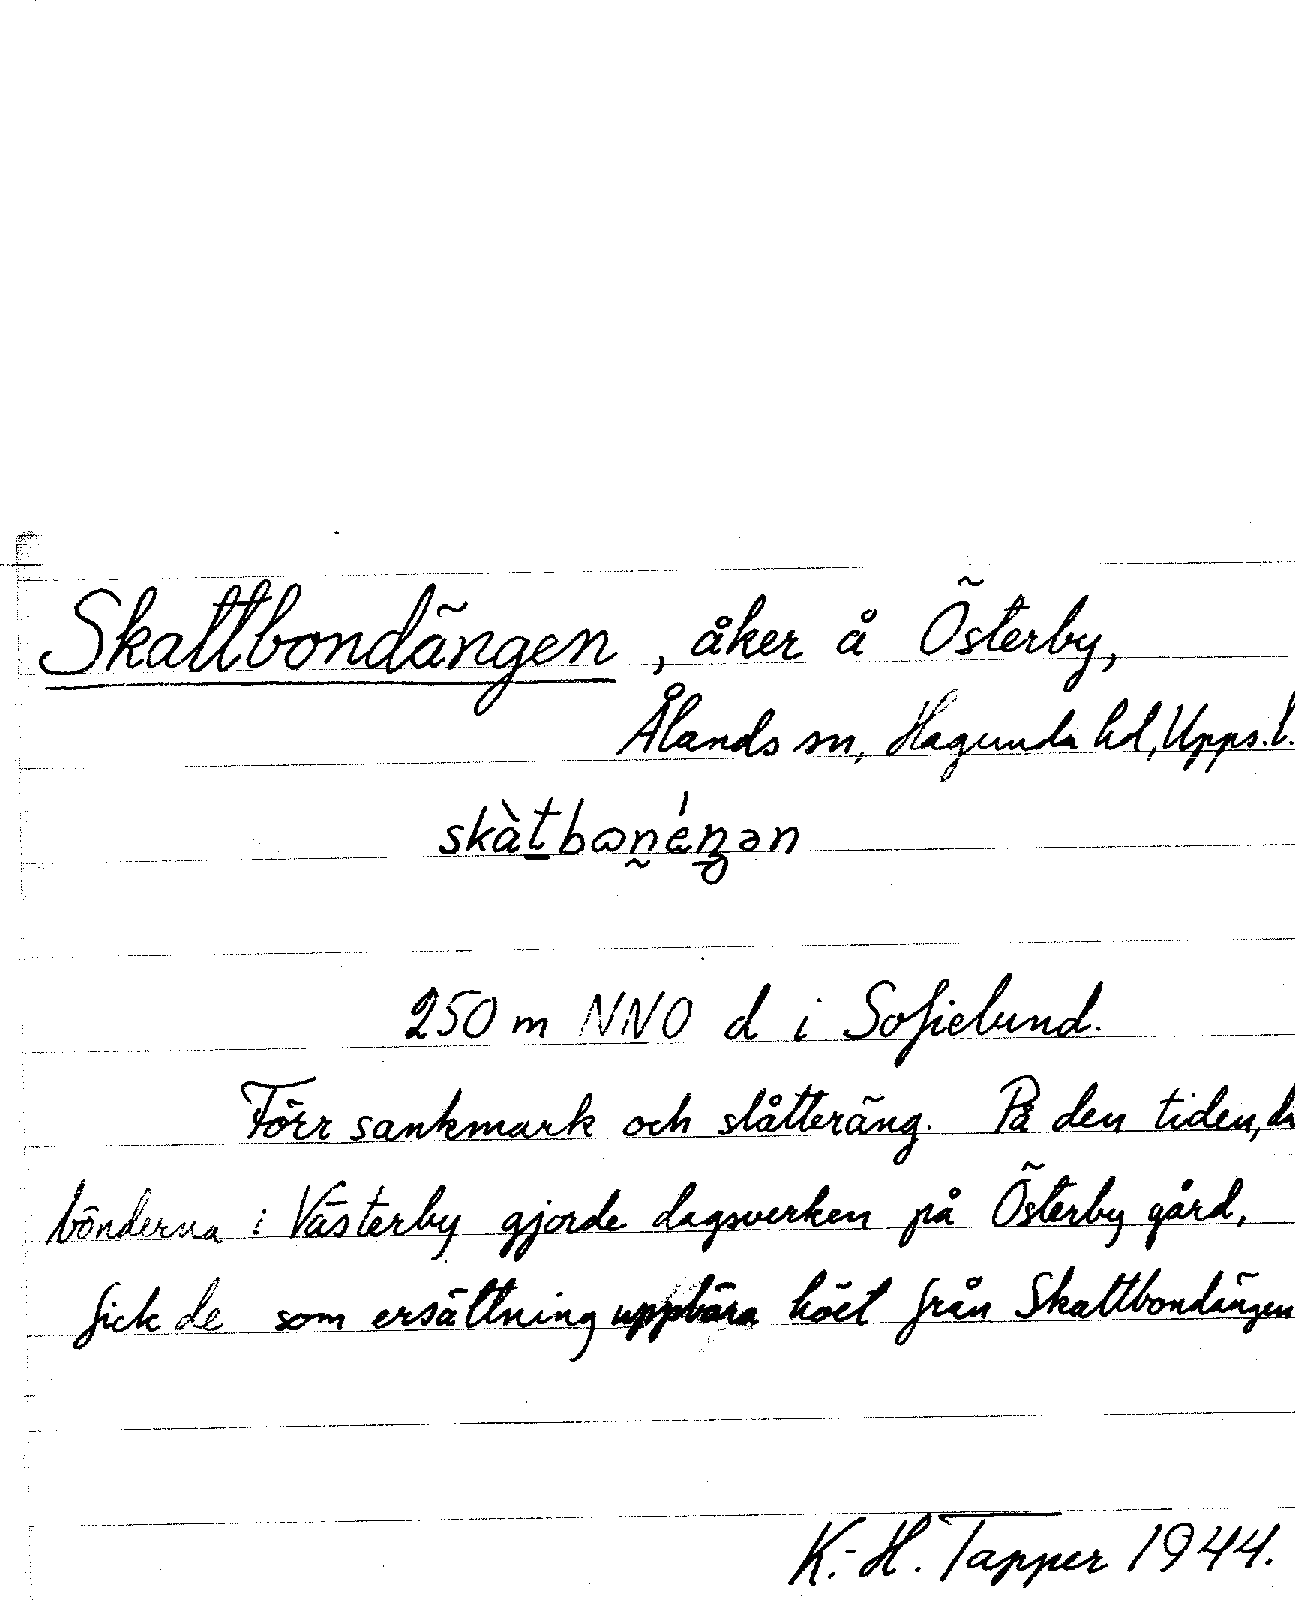 Skattbondängen, åker å Österby,
Ålands sn, Hagunda hd, Upps. l.
skàtbωn̰éŋən
250 m NNO d i Sofielund.
Förr sankmark och slåtteräng. På den tiden, då
bönderna i Västerby gjorde dagsverken på Österby gård,
fick de som ersättning uppbära höet från Skattbondängen
K.-H. Tapper 1944.